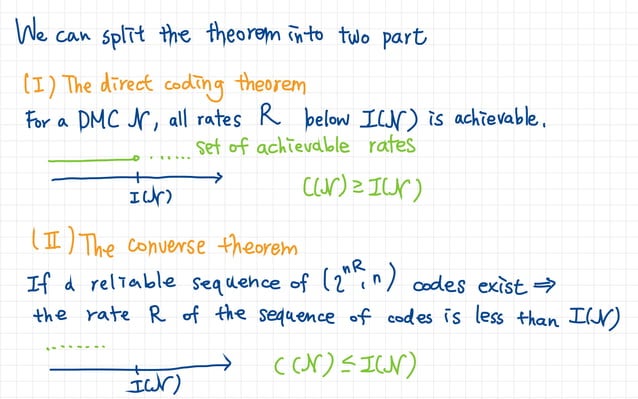 We can split the theorem into two part
(I) The direct coding theorem
For a DMC 𝒩, all rates R below I(𝒩) is achievable.
set of achievable rates
I(𝒩)
C(𝒩) ≥ I(𝒩)
(II) The converse theorem
If a reliable sequence of (2^{nR}, n) codes exist ⇒
the rate R of the sequence of codes is less than I(𝒩)
I(𝒩)
C(𝒩) ≤ I(𝒩)